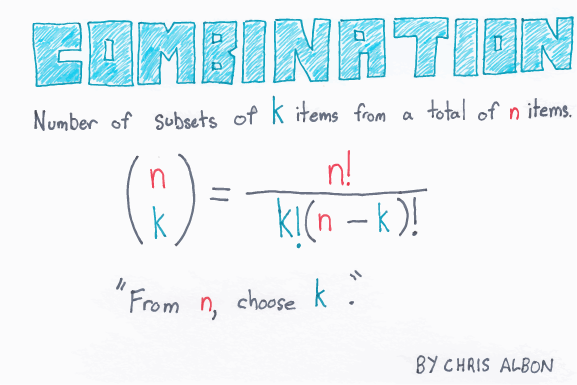 COMBINATION
Number of subsets of k items from a total of n items.
(n k) = n! / k!(n − k)!
"From n, choose k."
BY CHRIS ALBON